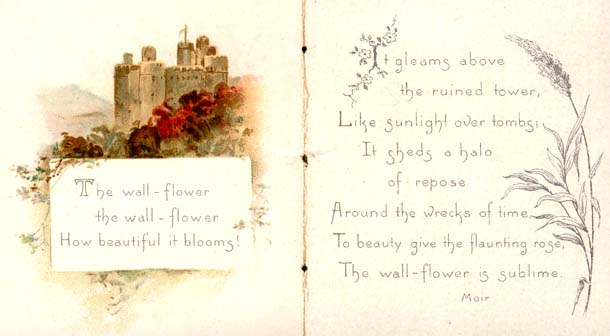 The wall-flower
the wall-flower
How beautiful it blooms!
It gleams above
the ruined tower,
Like sunlight over tombs;
It sheds a halo
of repose
Around the wrecks of time.
To beauty give the flaunting rose,
The wall-flower is sublime.
Moir